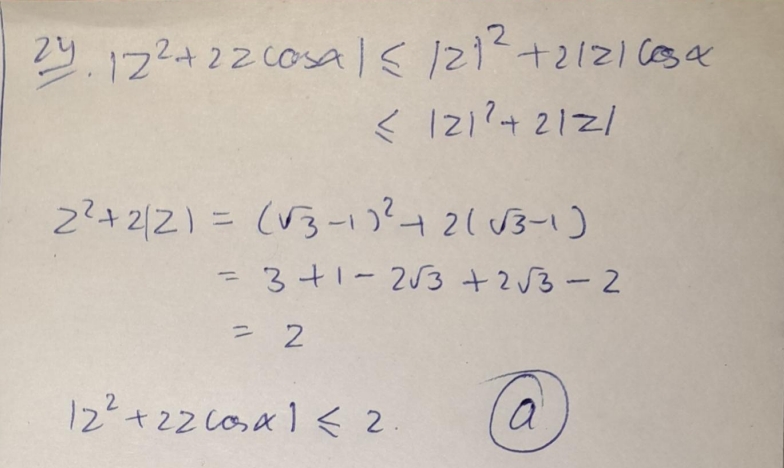 24. |z²+2z cosα| ≤ |z|²+2|z| cosα
≤ |z|²+2|z|
z²+2|z| = (√3-1)²+2(√3-1)
= 3+1-2√3+2√3-2
= 2
|z²+2z cosα| ≤ 2. a